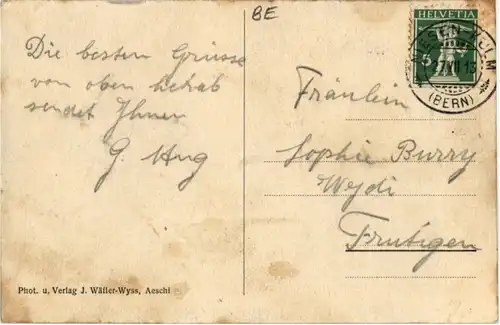 BE
HELVETIA
5
NIESEN-KULM
27.VII.13
(BERN)
Die besten Grüsse
von oben herab
sendet Ihnen
G. Hug
Fräulein
Sophie Burry
Weydi
Frutigen
Phot. u. Verlag J. Wäfler-Wyss, Aeschi